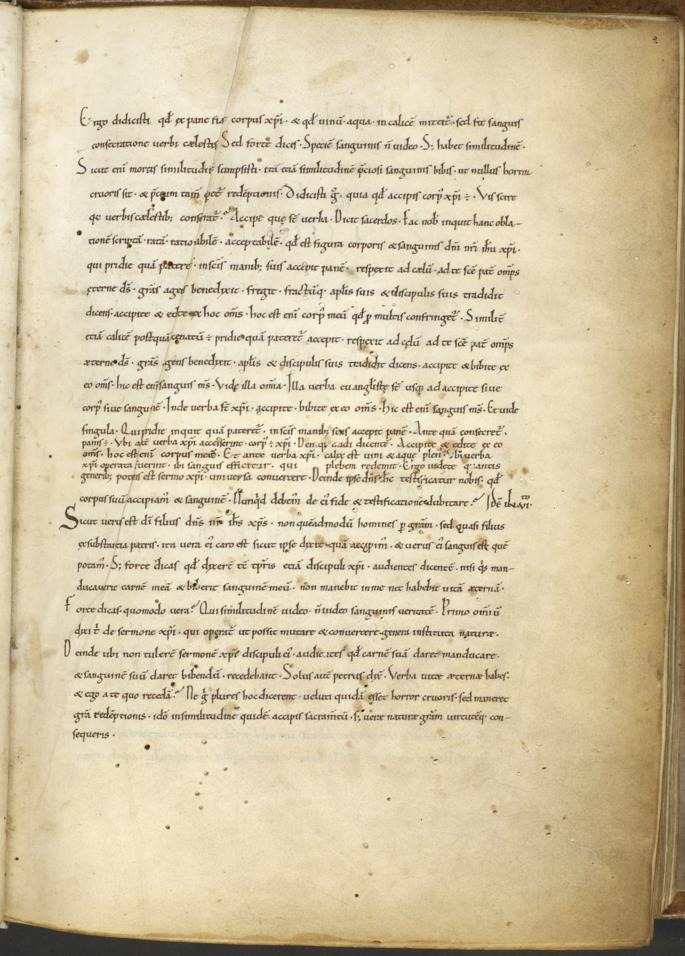 Ergo didicisti qd̄ ex pane fiat corpus xp̄i · & qd̄ uinū · aqua · in calicē mittit̄ · sed fit sanguis
consecratione uerbi cælestis Sed forte dices · Speciē sanguinis n̄ uideo · S; habet similitudinē ·
Sicut eni mortis similitudinē sumpsisti · ita etiā similitudinē p̄ciosi sanguinis bibis · ut nullus horror
cruoris sit · & p̄cium tam̄ redēptionis · Didicisti g̊ · quia qd̄ accipis corp' xp̄i ÷ · Vis scire
uerbis cælestib; consecrat̄ · Accipe que s̄t uerba · Dicit sacerdos · Fac nob̄ inquit hanc obla-
tionē scriptā · ratā · rationabilē · acceptabilē · qd̄ est figura corporis & sanguinis dn̄i nr̄i ihū xp̄i ·
qui pridie quā pateret̄ · in sc̄is manib; suis accepit panē · respexit ad cælū · ad te sc̄e pat̄ om̄ps
æterne ds̄ · gr̄as agens benedixit · fregit · fractūq; · apl̄is suis & discipulis suis tradidit
dicens · accipite & edite ex hoc om̄s · hoc est eni corp' meū qd̄ p multis confringet̄ · Similit̄
etiā calicē postquā cenatū ÷ pridie quā pateret̄ accepit · respexit ad cęlū ad te sc̄e pat̄ om̄ps
æterne ds̄ · gr̄as agens benedixit · apl̄is & discipulis suis tradidit dicens · accipite & bibite ex
eo om̄s · hic est eni sanguis ms̄ · Vide illa om̄ia · Illa uerba euangelistę s̄t usq; ad accipite siue
corp' siue sanguinē · Inde uerba s̄t xp̄i · accipite · bibite ex eo om̄s · Hic est eni sanguis ms̄ · Et uide
singula · Qui pridie inquit quā pateret̄ · in sc̄is manib; suis accepit panē · Ante quā consecret̄ ·
panis ÷ · Vbi aut̄ uerba xp̄i accesserint · corp' ÷ xp̄i · Deniq; audi dicentē · Accipite & edite ex eo
om̄s · hoc est eni corpus meū · Et ante uerba xp̄i · calix est uini & aquę plen' · Ubi uerba
xp̄i operata fuerint · ibi sanguis efficitur · qui plebem redemit · Ergo uidete quantis
generib; potens est sermo xp̄i · uniuersa conuertere · Deinde ipse dn̄s ihc̄ testificatur nobis · qd̄
corpus suū accipiam & sanguinē · Nunqd̄ debem de ei fide & testificatione dubitare ·
Sicut uerus est di filius dn̄s nr̄ ihs̄ xp̄s · non quēadmodū homines p gr̄am · sed quasi filius
ex substantia patris · ita uera ei caro est sicut ipse dixit · quā accipim · & uerus ei sanguis est quē
potam · S; forte dicas qd̄ dixerē tē tp̄ris etiā discipuli xp̄i · audientes dicentē · nisi q̄s man-
ducauerit carnē meā & biberit sanguinē meū · non manebit in me nec habebit uitā æternā ·
Forte dicas · quomodo uera? Qui similitudinē uideo · n̄ uideo sanguinis ueritatē · Primo omiū
dixi t̄ de sermone xp̄i · qui operat̄ ut possit mutare & conuertere genera instituta naturæ ·
Deinde ubi non tulerē sermonē xp̄i discipuli ei · audientes qd̄ carnē suā daret manducare ·
& sanguinē suū daret bibendū · recedebant · Solus aut̄ petrus dix̄ · Verba uitæ æternæ habes ·
& ego a te quo recedā? Ne g̊ plures hoc dicerent · ueluti quidā esset horror cruoris · sed maneret
gr̄a redēptionis · ido in similitudine quidē accipis sacramtū · s; ueræ naturæ gr̄am uirtutēq; con-
sequeris ·